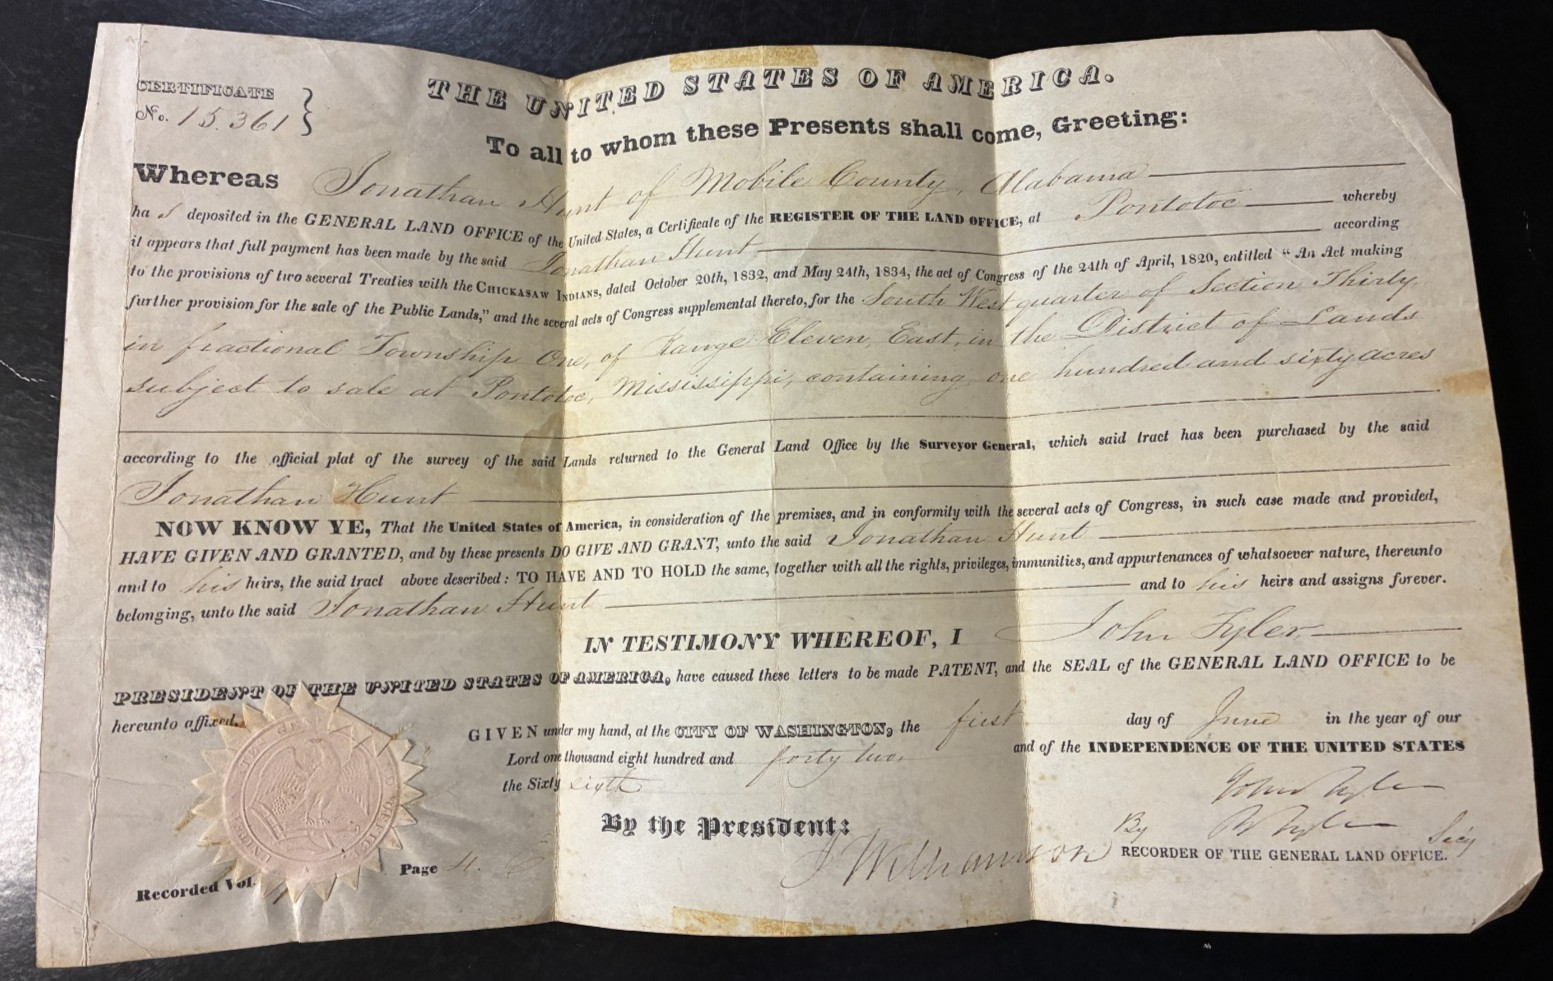 THE UNITED STATES OF AMERICA.
CERTIFICATE
No. 15.361
To all to whom these Presents shall come, Greeting:
Whereas Jonathan Hunt of Mobile County, Alabama
ha s deposited in the GENERAL LAND OFFICE of the United States, a Certificate of the REGISTER OF THE LAND OFFICE, at Pontotoc whereby
it appears that full payment has been made by the said Jonathan Hunt according
to the provisions of two several Treaties with the CHICKASAW INDIANS, dated October 20th, 1832, and May 24th, 1834, the act of Congress of the 24th of April, 1820, entitled "An Act making
further provision for the sale of the Public Lands," and the several acts of Congress supplemental thereto, for the South West quarter of Section Thirty,
in fractional Township One, of Range Eleven, East, in the District of Lands
subject to sale at Pontotoc, Mississippi, containing one hundred and sixty acres
according to the official plat of the survey of the said Lands returned to the General Land Office by the Surveyor General, which said tract has been purchased by the said
Jonathan Hunt
NOW KNOW YE, That the United States of America, in consideration of the premises, and in conformity with the several acts of Congress, in such case made and provided,
HAVE GIVEN AND GRANTED, and by these presents DO GIVE AND GRANT, unto the said Jonathan Hunt
and to his heirs, the said tract above described: TO HAVE AND TO HOLD the same, together with all the rights, privileges, immunities, and appurtenances of whatsoever nature, thereunto
belonging, unto the said Jonathan Hunt and to his heirs and assigns forever.
IN TESTIMONY WHEREOF, I John Tyler
PRESIDENT OF THE UNITED STATES OF AMERICA, have caused these letters to be made PATENT, and the SEAL of the GENERAL LAND OFFICE to be
hereunto affixed.
GIVEN under my hand, at the CITY OF WASHINGTON, the first day of June in the year of our
Lord one thousand eight hundred and forty two, and of the INDEPENDENCE OF THE UNITED STATES
the Sixty sixth
By the President: John Tyler
By R Tyler Sec'y
J Williamson RECORDER OF THE GENERAL LAND OFFICE.
Recorded Vol. Page